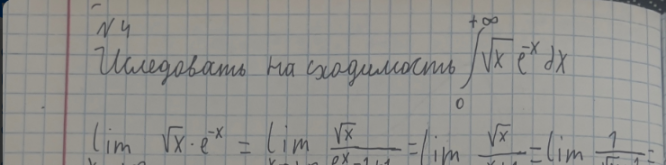 №4
Иследовать на сходимость ∫₀^{+∞} √x e^{-x} dx
lim √x · e^{-x} = lim √x = lim √x = lim 1